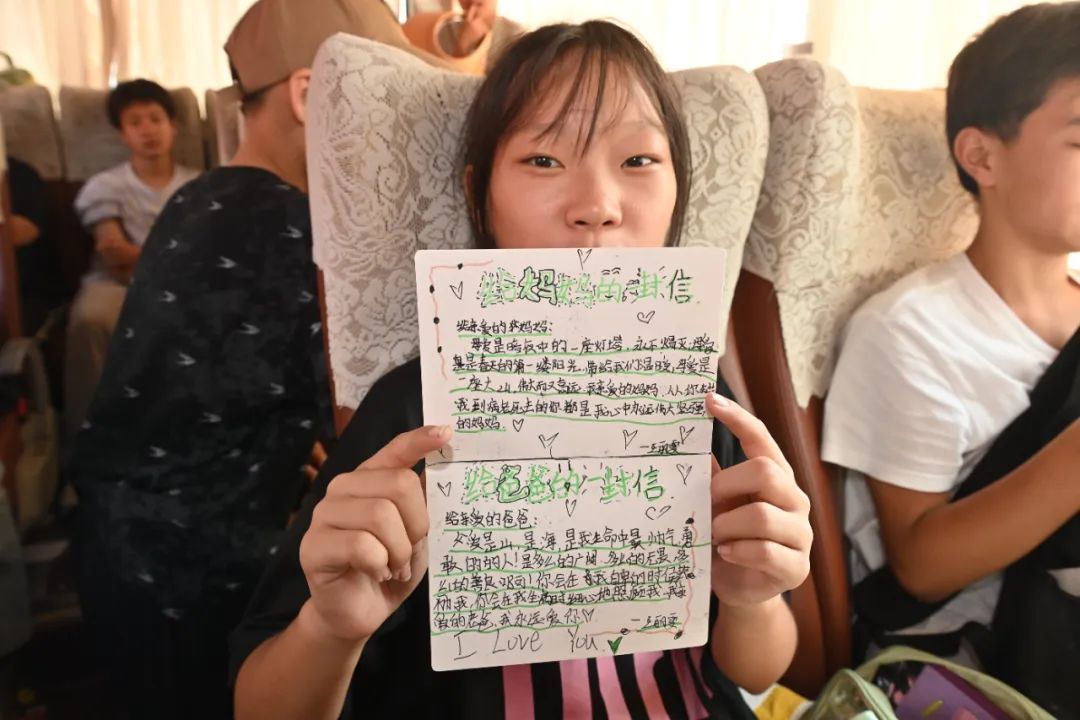 给妈妈的一封信
给亲爱的妈妈:
母爱是暗夜中的一座灯塔,永不熄灭,母爱
是春天的第一缕阳光,带给我们温暖,母爱是
一座大山,伟大而又高远,我亲爱的妈妈,从你
我到病老死去的你都是我心中永远伟大坚强
的妈妈。
给爸爸的一封信
给亲爱的爸爸:
父爱是山,是海,是我生命中最帅气,勇
敢的的人!是多么的广阔,多么的无畏,多
么的善良 你会在我自卑的时候
我,你会在我生病时细心地照顾我,我
的老爸,我永远爱你
I Love You